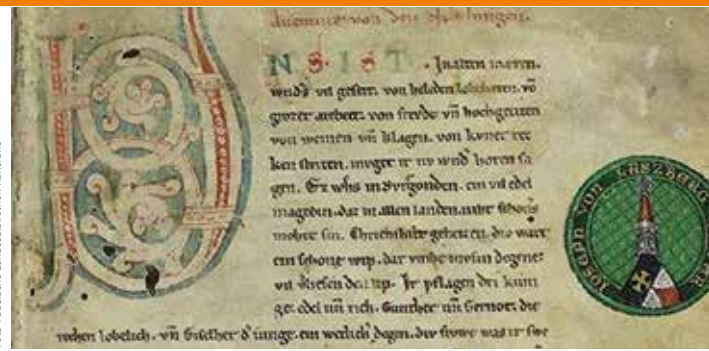 Auenture von den Nibelungen.
N S. I S T. In alten mæren.
wnd's vil geseit. von heleden lobebæren. vō
grozer arebeit. von frevde vñ hochgeciten
von weinen vñ klagen. von kvner rec
ken striten. mvget ir nv wnd's horen sa
gen. Ez whs in Bvrgonden. ein vil edel
magedin. daz in allen landen. niht schoners
mohte sin. Chriemhilt geheizen. div wart
ein schone wip. dar vmbe mvsin degene
vil
Ir pflagen dri kuni
ge. edel vñ rich. Gunther vñ Gernot. die
rechen lobelich. vñ Giselher d' iunge. ein wetlich degen. div frowe was ir swe
IOSEPH VON LASZBERG